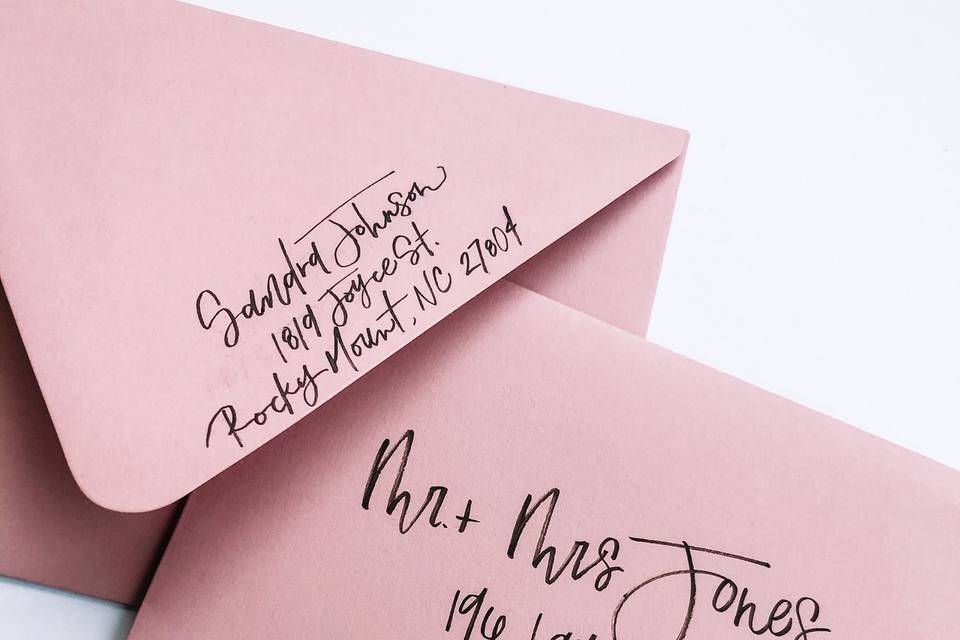 Sandra Johnson
1819 Joyce St.
Rocky Mount, NC 27804
Mr. + Mrs Jones
196